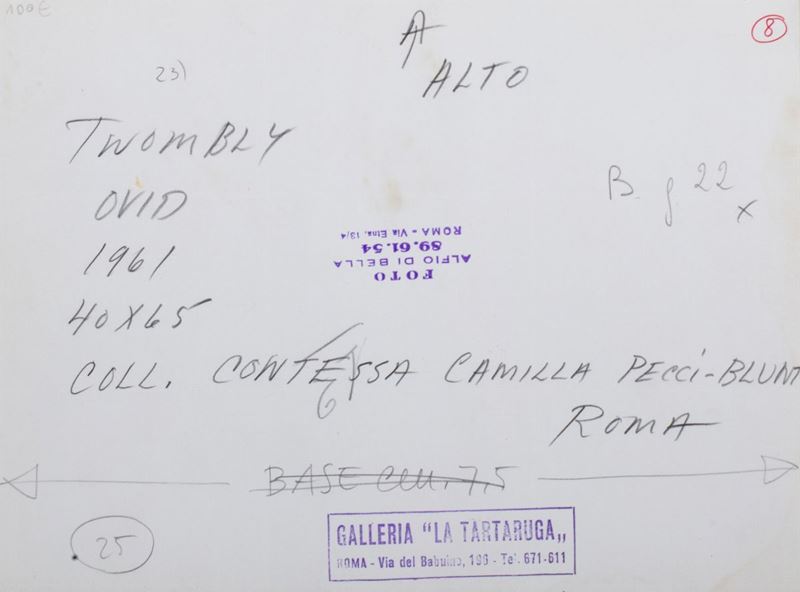 100€
ALTO
8
23)
TWOMBLY
OVID
1961
40X65
B. g 22
x
FOTO
ALFIO DI BELLA
89.61.54
ROMA - Via Etna, 13/4
COLL. CONTESSA CAMILLA PECCI-BLUNT
6
ROMA
BASE cm. 7,5
25
GALLERIA "LA TARTARUGA„
ROMA - Via del Babuino, 196 - Tel. 671-611